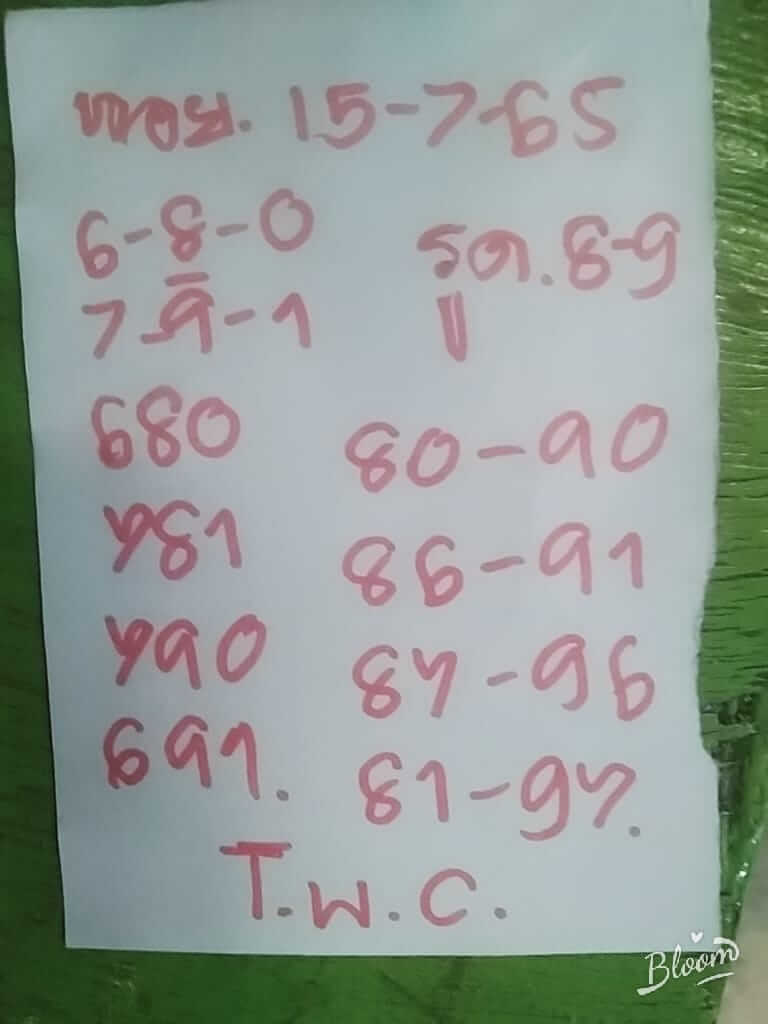 หานอย. 15-7-65
6-8-0
7-9-1
รูด. 8-9
680
781
790
691.
80-90
86-91
87-96
81-97.
T.W.C.
Bloom